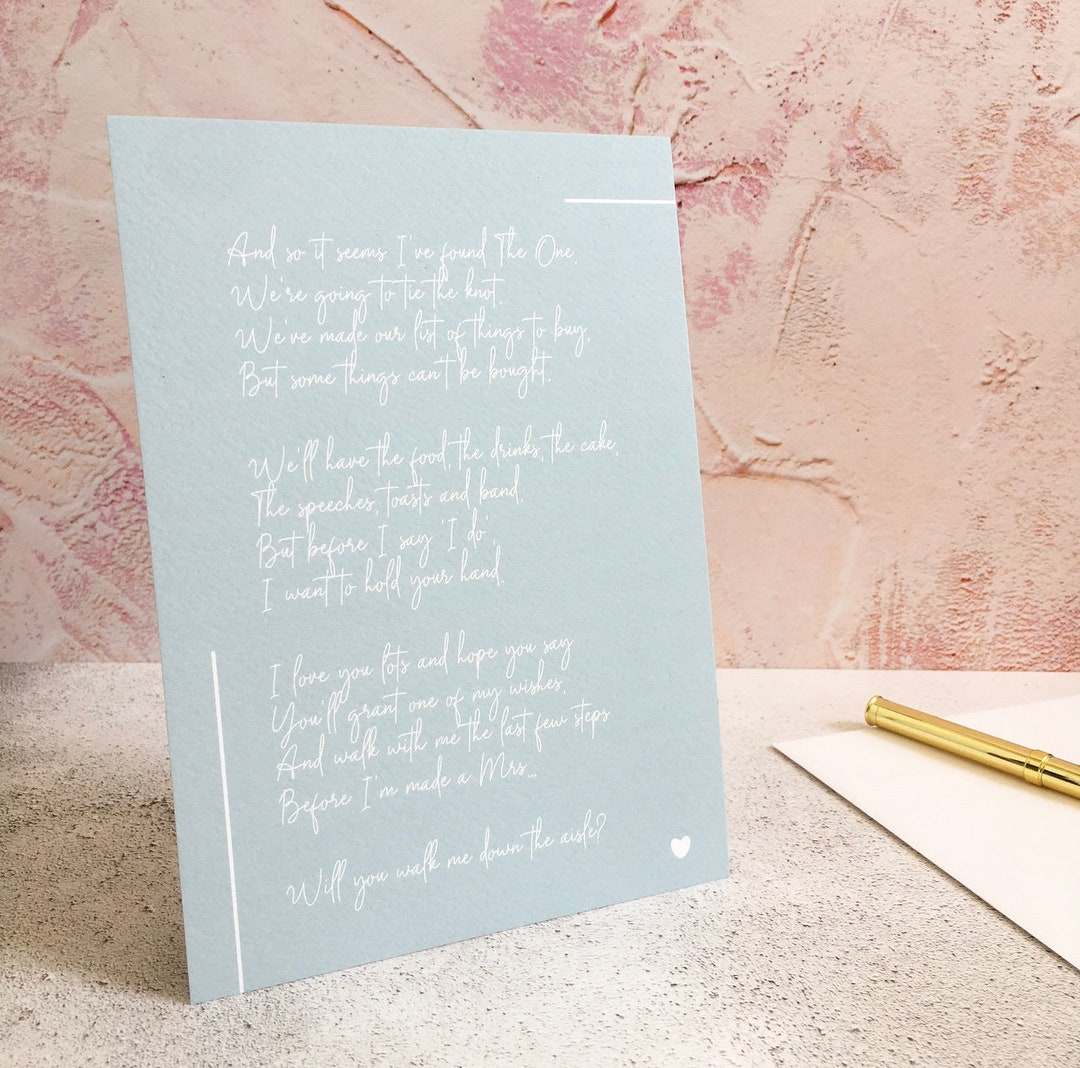 And so it seems I've found The One,
We're going to tie the knot.
We've made our list of things to buy,
But some things can't be bought.
We'll have the food, the drinks, the cake,
The speeches, toasts and band,
But before I say 'I do',
I want to hold your hand.
I love you lots and hope you say
You'll grant one of my wishes,
And walk with me the last few steps
Before I'm made a Mrs...
Will you walk me down the aisle?